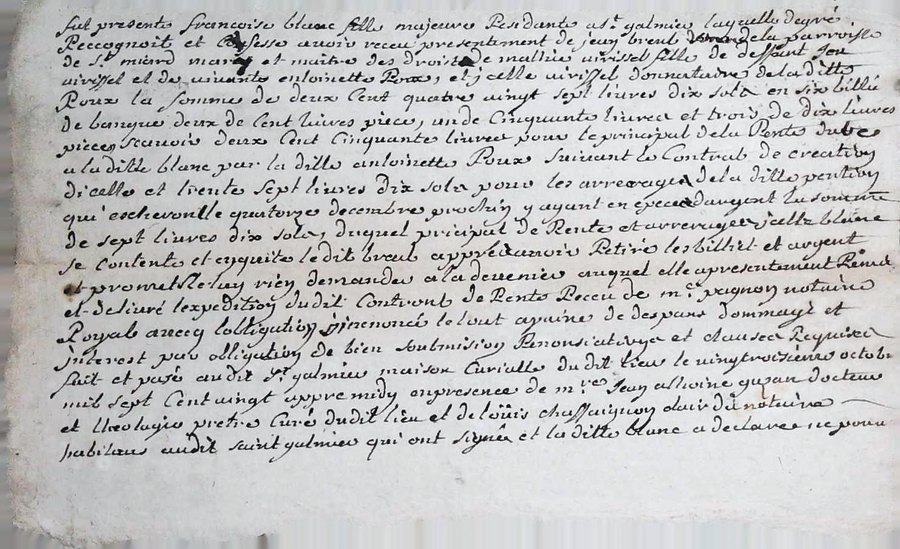 fut presente francoise blanc fille majeure Residante a st galmier laquelle de gré
Reccognoit et confesse avoir receu presentement de jean breul de la parroisse
de st miard mary et maitre des droits de mathie virissel fille de deffunt
virissel et de vivante entoinette Roux, et jcelle virissel donnataire de la ditte
Roux la somme de deux cent quatre vingt sept livres dix sols en six billiés
de banque deux de cent livres piece, un de cinquante livres et trois de dix livres
pieces scavoir deux cent cinquante livres pour le principal de la Rente dube
a la ditte blanc par la ditte antoinette Roux suivant le contrat de création
dicelle et trente sept livres dix sols pour les arrerages de la ditte pention
qui escheront le quatorze decembre prochin y ayant en espece dargent la somme
de sept livres dix sols, duquel pricipal de Rente et arrerages jcelle blanc
se contente et en quite le dit breul apprés avoir Retiré les billiet et argent
et promet luy rien demander a la devenir auquel elle a presentement Remis
et deslivré lexpedition dudit Contront de Rente Receu de me pagnon notaire
Royale avecq lobligation le tout a paine de despans dommage et
jnterest par obligation de bien soulmision Renonsiations et clauses Requises
fait et pasé audit st galmier maison Curialle dudit lieu le vingtroisieme octobre
mil sept Cent vingt appremidy en presence de mre Jean docteur
et theologie pretre Curé dudit lieu et de louis chassaignon clair de notaire
habitans audit saint galmier qui ont signés et la ditte blanc a declaree ne pouvoir